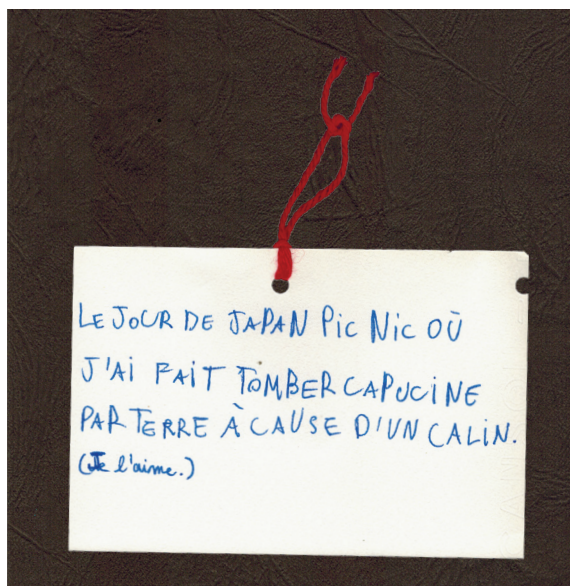 LE JOUR DE JAPAN PIC NIC OÙ
J'AI FAIT TOMBER CAPUCINE
PAR TERRE À CAUSE D'UN CALIN.
(Je l'aime.)